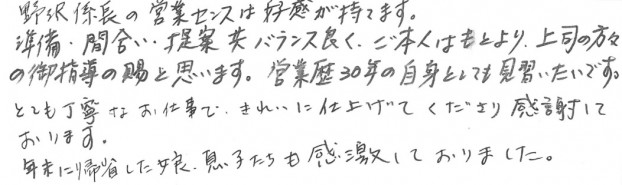 野沢係長の営業センスは好感が持てます。
準備・間合い・提案共バランス良く、ご本人はもとより、上司の方々
の御指導の賜と思います。営業歴30年の自身としても見習いたいです。
とても丁寧なお仕事で、きれいに仕上げてくださり感謝して
おります。
年末に帰省した娘、息子たちも感激しておりました。